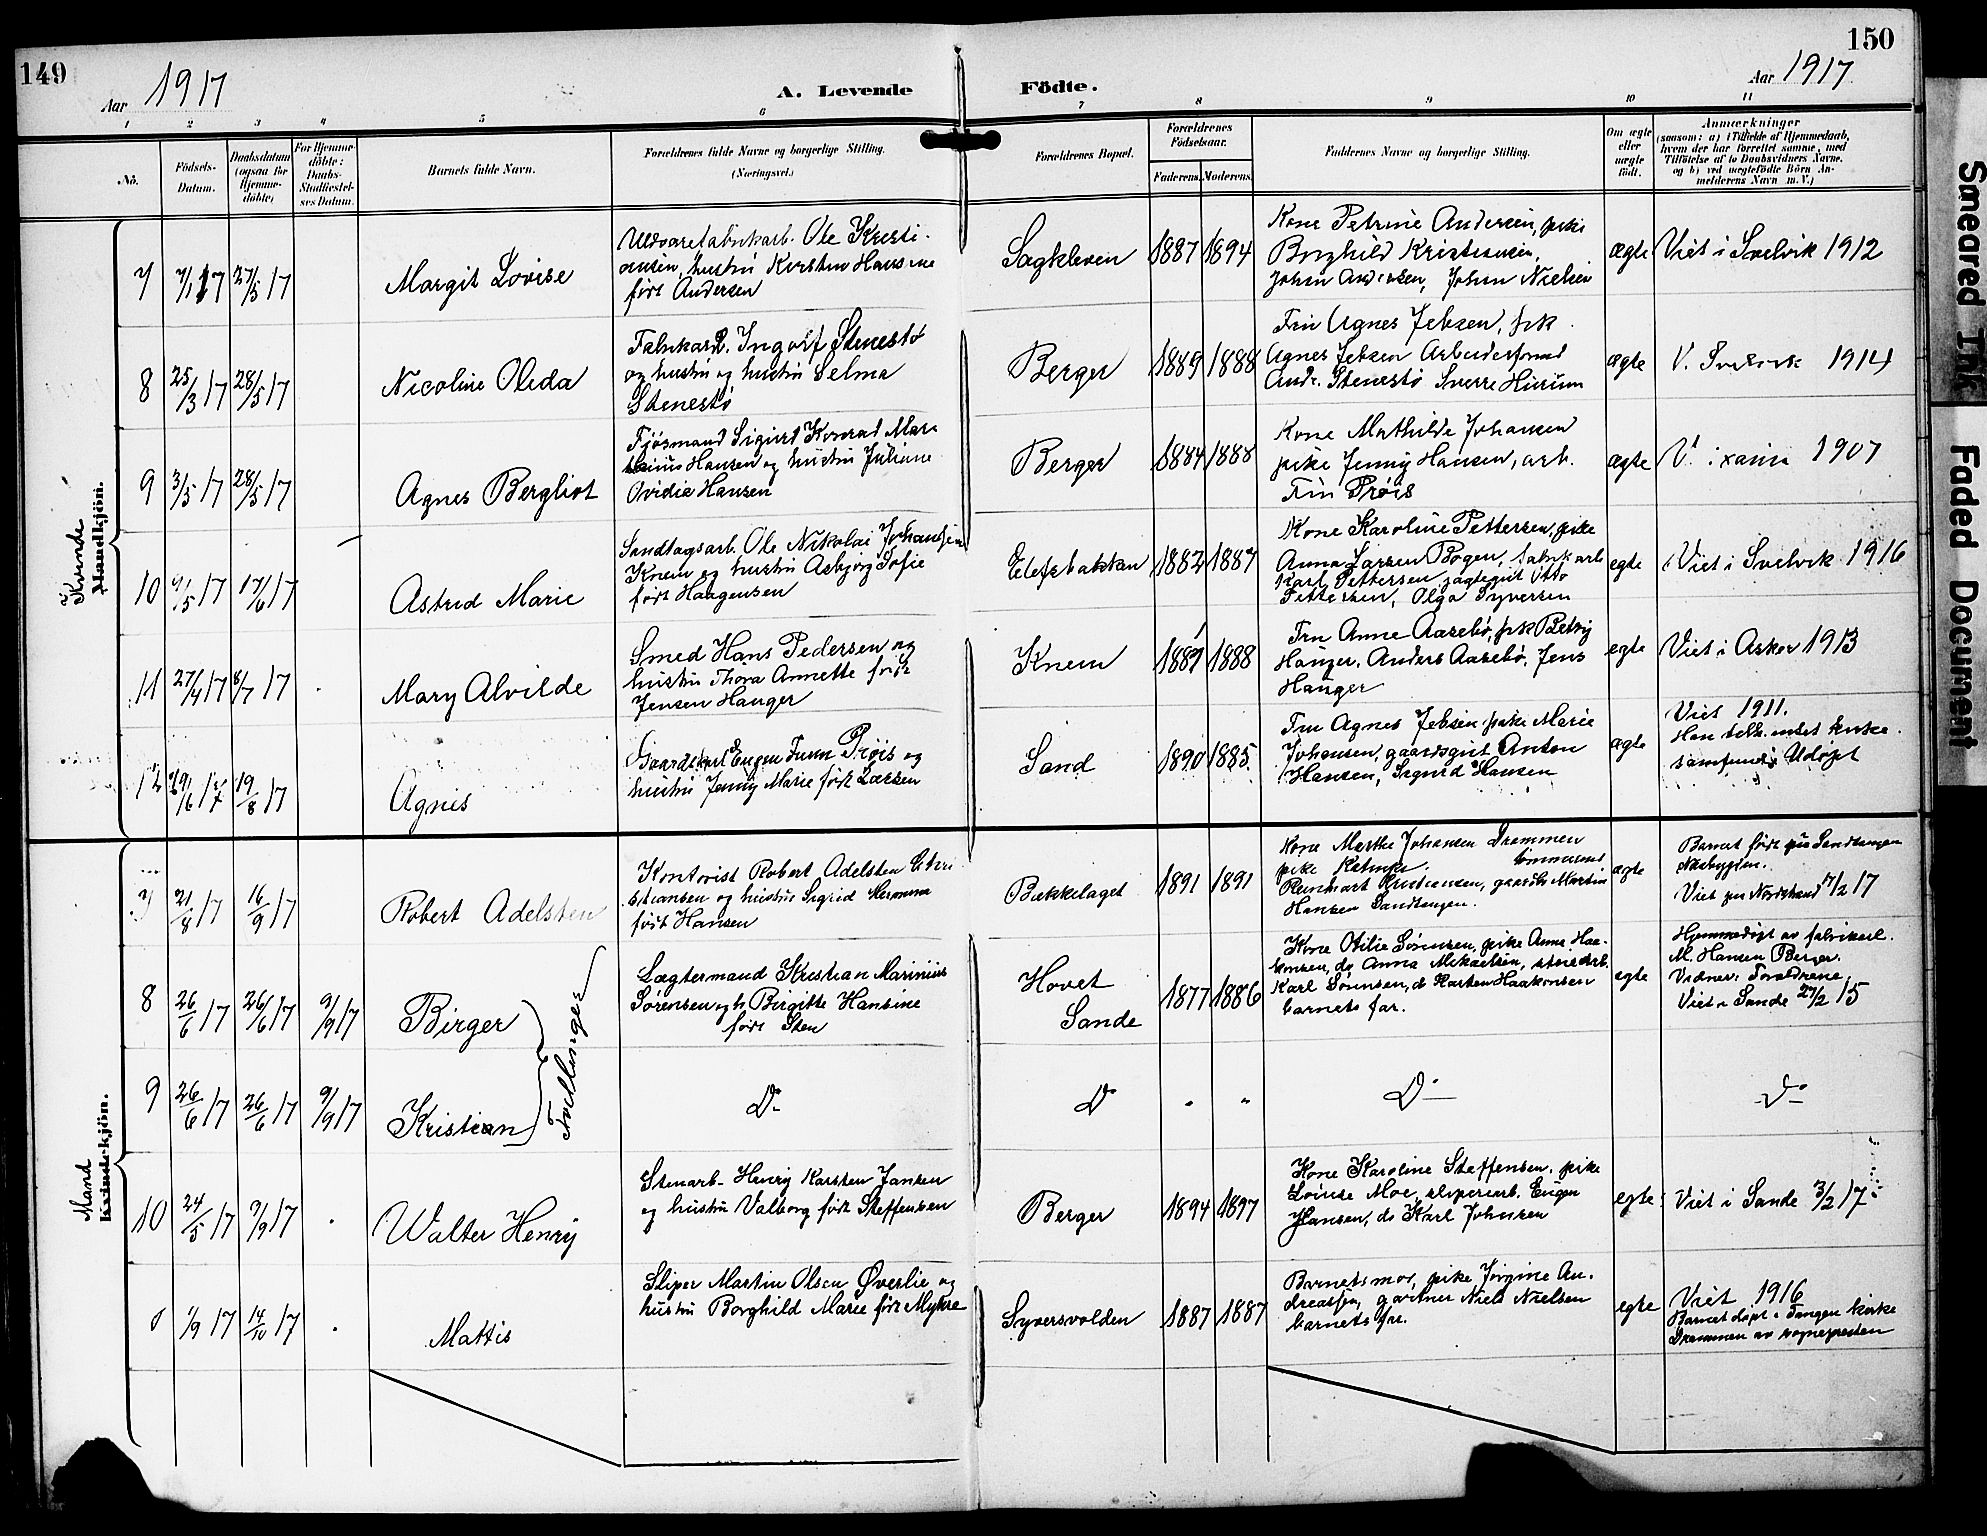 149
Aar 1917
A. Levende
Födte.
Aar 1917
150
1 2 3 4 5 6 7 8 9 10 11
No.
Födsels-
Datum.
Daabsdatum
(ogsaa for
Hjemme-
döbte)
For Hjemme-
döbte:
Daabs-
Stadfæstel-
ses Datum.
Barnets fulde Navn.
Forældrenes fulde Navne og borgerlige Stilling.
(Næringsvei.)
Forældrenes Bopæl.
Forældrenes
Födselsaar.
Faderens. Moderens.
Faddernes Navne og borgerlige Stilling.
Om ægte
eller
uægte
födt.
Anmærkninger
(saasom: a) i Tilfælde af Hjemmedaab,
hvem der har forrettet samme, med
Tilföielse af to Daabsvidners Navne,
og b) ved uægtefödte Börn An-
melderens Navn m. V.)
Kvinde
Mandkjön.
7 7/1 17 27/5 17
Margit Lovise
Uldvarefabrikarb. Ole Kristi-
ansen, hustru Kirsten Hansine
født Andersen
Sagkleven 1887 1894
Kone Petrine Andersen, pike
Borghild Kristensen,
Johan Andersen, Johan Nielsen
ægte
Viet i Svelvik 1912
8 25/3 17 28/5 17
Nicoline Oleda
Fabrikarb. Ingolf Stenestø
og hustru og hustru Selma
Stenestø
Berger 1889 1888
Fru Agnes Jebsen, frk.
Agnes Jebsen Arbeidsformd
Andr. Stenestø Sverre
ægte
V. Svelvik 1914
9 3/5 17 28/5 17
Agnes Bergliot
Fjøsmand Sigurd Konrad Mar-
thinius Hansen og hustru Juliane
Ovidia Hansen
Berger 1884 1888
Kone Mathilde Johansen
pike Jenny Hansen, arb.
Fin Prøis
ægte
V. 1907
10 9/5 17 17/6 17
Astrid Marie
Sandtagsarb. Ole Nikolai Johansen
Knem og hustru Asbjørg Sofie
født Haagensen
1882 1887
Kone Karoline Pettersen, pike
Anna Larsen Bogen, fabrikarb
Karl Pettersen jagtegut Otto
Pettersen, Olga Syversen
egte
Viet i Svelvik 1916
11 27/4 17 8/7 17
Mary Alvilde
Smed Hans Pedersen og
hustru Thora Annette født
Jensen Hauger
Knem 1887 1888
Fru Anne Aarebø, frk Betsy
Hauger, Anders Aarebø, Jens
Hauger
egte
Viet i Asker 1913
12 29/6 17 19/8 17
Agnes
Gaardskarl Eugen Finn Prøis og
hustru Jenny Marie født Larsen
Sand 1890 1885
Fru Agnes Jebsen, pike Marie
Johansen, gaardsgut Anton
Hansen, Sigurd Hansen
ægte
Viet 1911.
Han tilh. intet kirke-
samfund. Udøpt
Mand
Kvindekjön.
7 21/8 17 16/9 17
Robert Adelsten
Kontorist Robert Adelsten Chri
stiansen og hustru Sigrid Hermma
født Hansen
Bækkelaget 1891 1891
Kone Marthe Johansen Drammen
pike
Reinhart Kristiansen, gaardb Martin
Hansen Sandtangen.
ægte
Barnet født paa Sandtangen
Næsbygden.
Viet paa Nordstrand 17/2 17
8 26/6 17 26/6 17 9/9 17
Birger
Lægtermand Kristian Marinius
Sørensen og h. Birgitte Hansine
født Sten
Hovet
Sande
1877 1886
Kone Otilie Sørensen, pike Anna Haa-
konsen, do Anna Mikaelsen, stenarb.
Karl Sørensen, do Karsten Haakonsen
barnets far.
egte
Hjemmedøpt av fabrikeil.
M. Hansen Berger.
Vidner: Forældrene,
Viet i Sande 27/2 15
Tvillinger
9 26/6 17 26/6 17 9/9 17
Kristian
Do
Do " "
Do
Do
10 24/5 17 9/9 17
Walter Henry
Stenarb. Henry Karsten Jansen
og hustru Valborg født Steffensen
Berger 1894 1897
Kone Karoline Steffensen, pike
Louise Moe, sliperarb. Eugen
Hansen, do Karl Johnsen
egte
Viet i Sande 3/2 17
1/9 17 14/10 17
Mattis
Sliper Martin Olsen Øverlie og
hustru Borghild Marie født Myhre
Syversvolden 1887 1887
Barnets mor, pike Jørgine An-
dreassen, gartner Niels Nielsen
barnets far.
egte
Viet 1916
Barnet døpt i Tangen kirke
Drammen av sognepresten
Smeared Ink
Faded Document